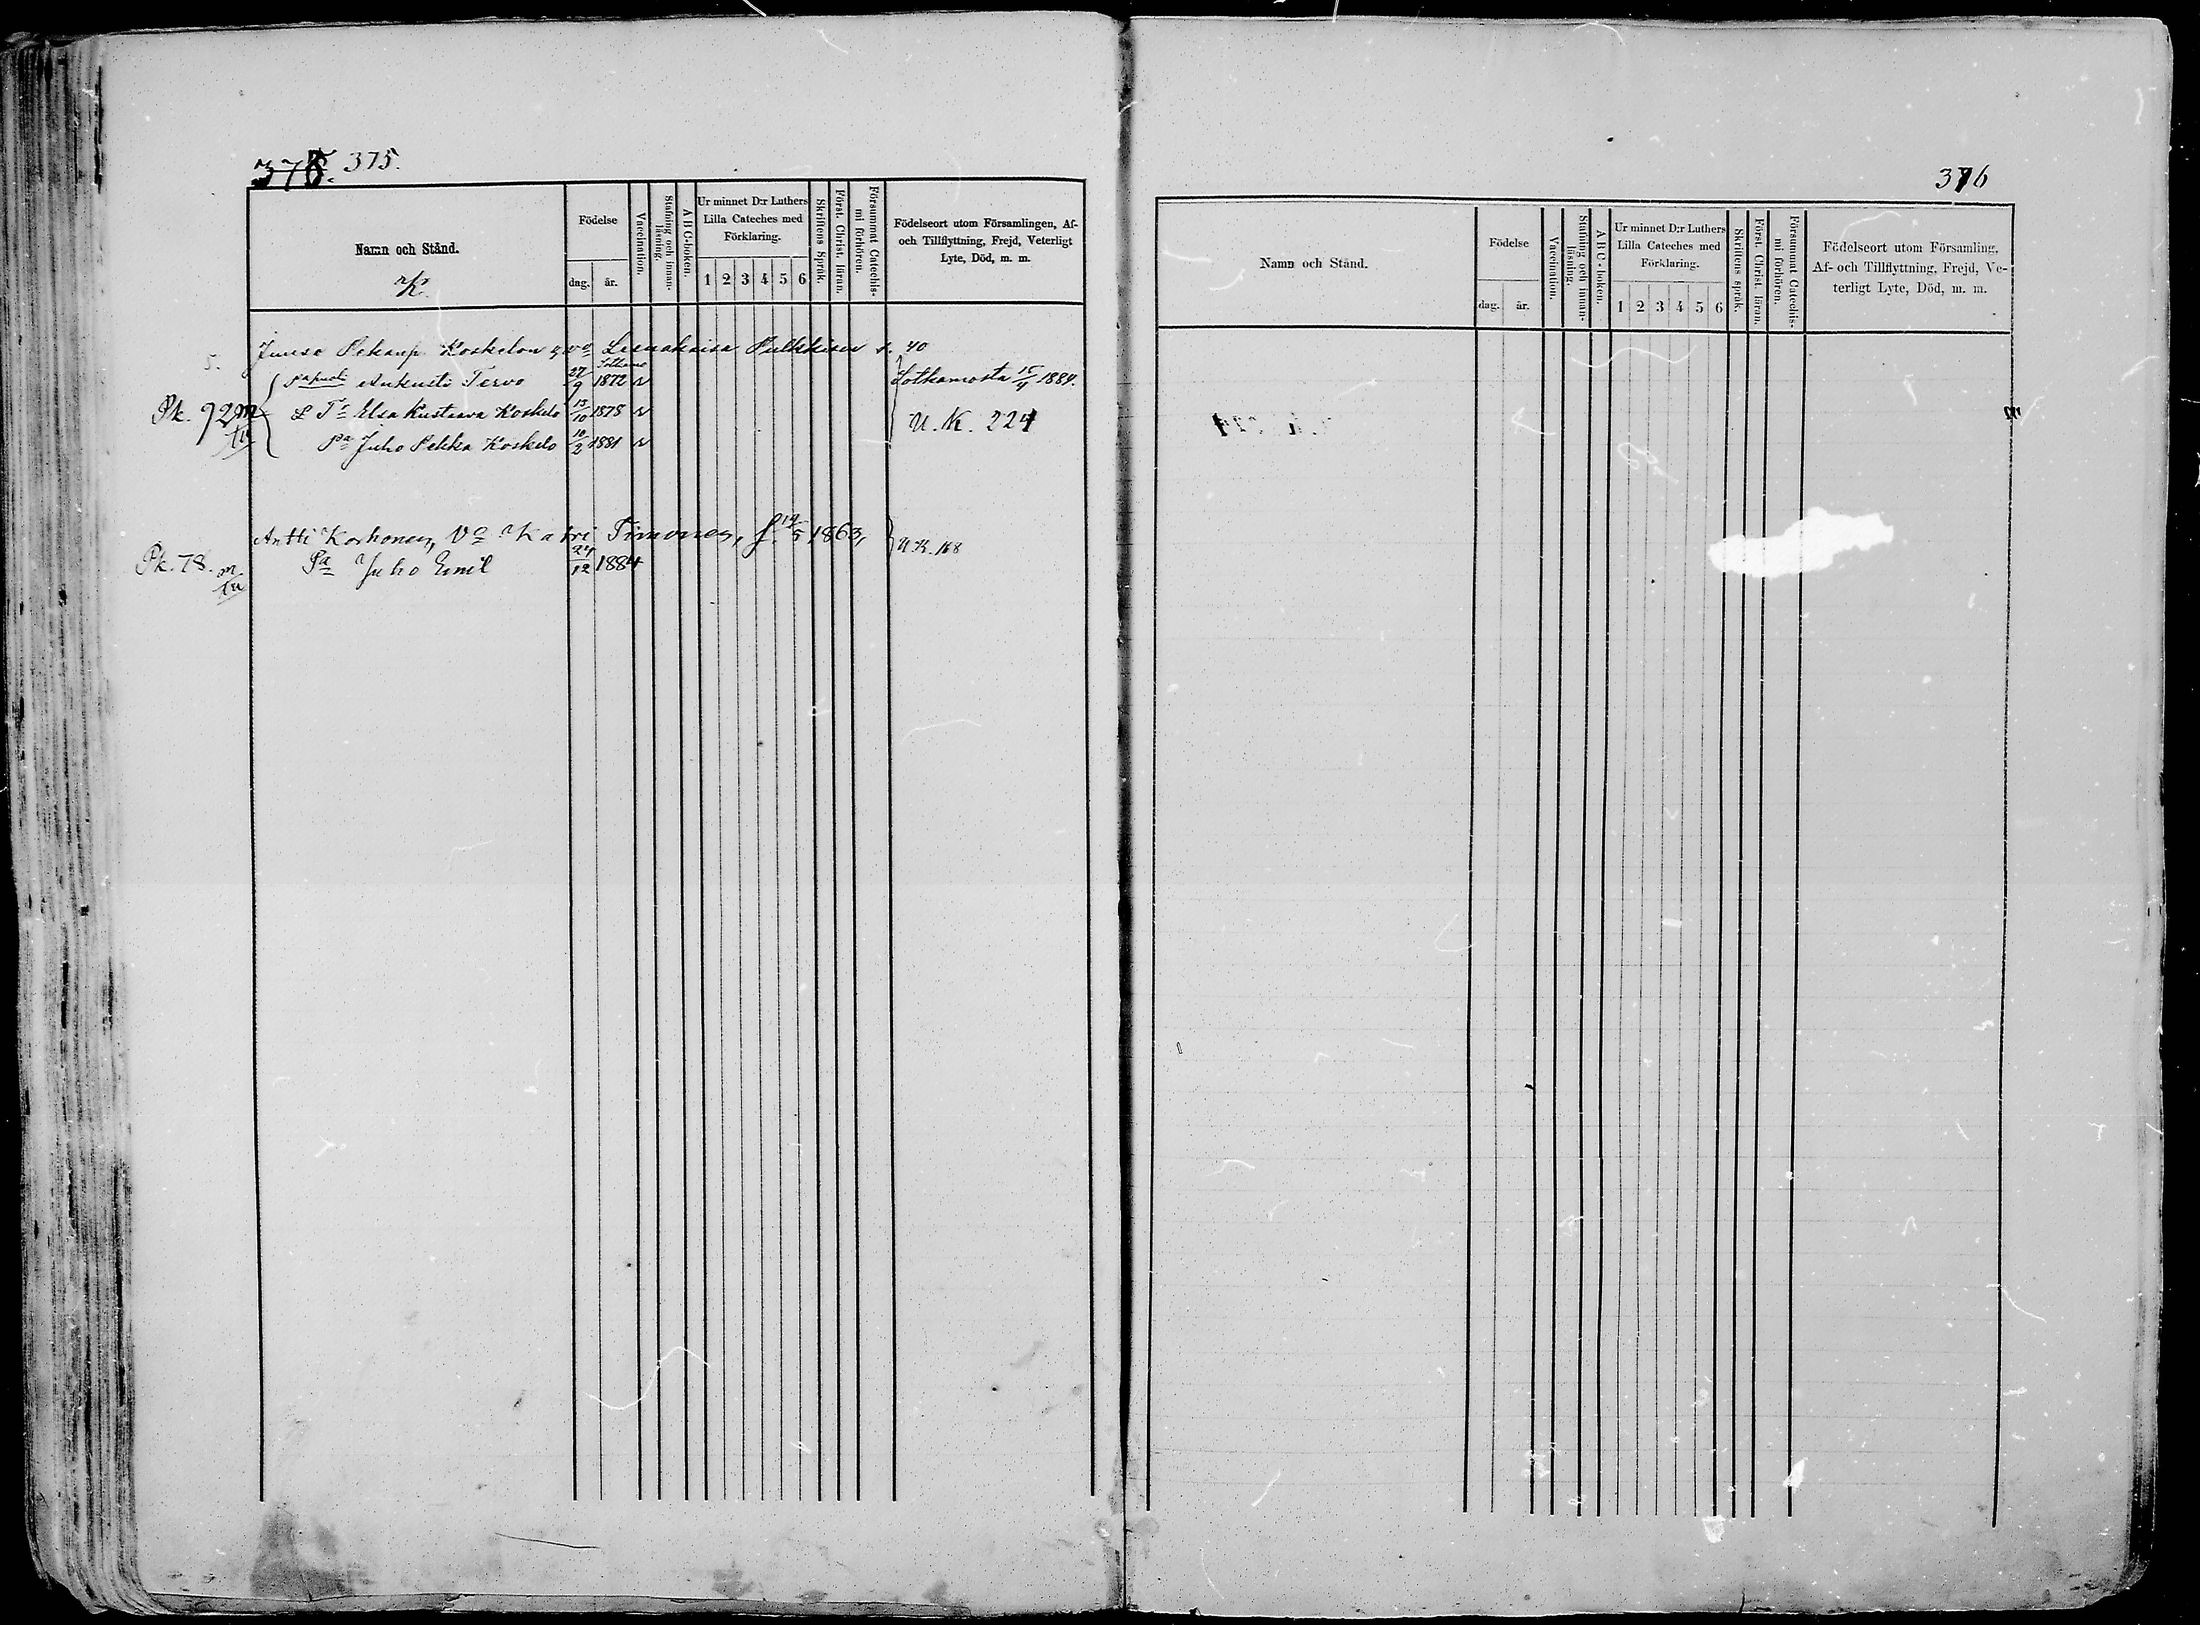 375. 375.
Namn och Stånd.
K.
Födelse
dag. år.
Vaccination.
Stafning och innan-läsning.
ABC-boken.
Ur minnet D:r Luthers Lilla Cateches med Förklaring.
1 2 3 4 5 6
Skriftens Språk.
Först. Christ. läran.
Försummat Catechis-mi förhören.
Födelseort utom Församlingen, Af- och Tillflyttning, Frejd, Veterligt Lyte, Död, m. m.
Pekanp. Koskelon Pulkkisen s. 40
Aukusti Tervo 27/9 1872 v Sotkamosta 15/4 1884.
Pk. 92 L Tr Elsa Kustaava Koskelo 13/10 1878 v U.K. 224
Pa Juho Pekka Koskelo 10/2 1881 v
Antti Korhonen, Va Katri Timonen, f. 19/5 1863, U.K. 168
Pk. 78. Pa Juho Emil 24/12 1884
376
Namn och Stånd.
Födelse
dag. år.
Vaccination.
Stafning och innan-läsning.
ABC-boken.
Ur minnet D:r Luthers Lilla Cateches med Förklaring.
1 2 3 4 5 6
Skriftens språk.
Först. Christ. läran.
Försummat Catechis-mi förhören.
Födelseort utom Församling, Af- och Tillflyttning, Frejd, Ve-terligt Lyte, Död, m. m.